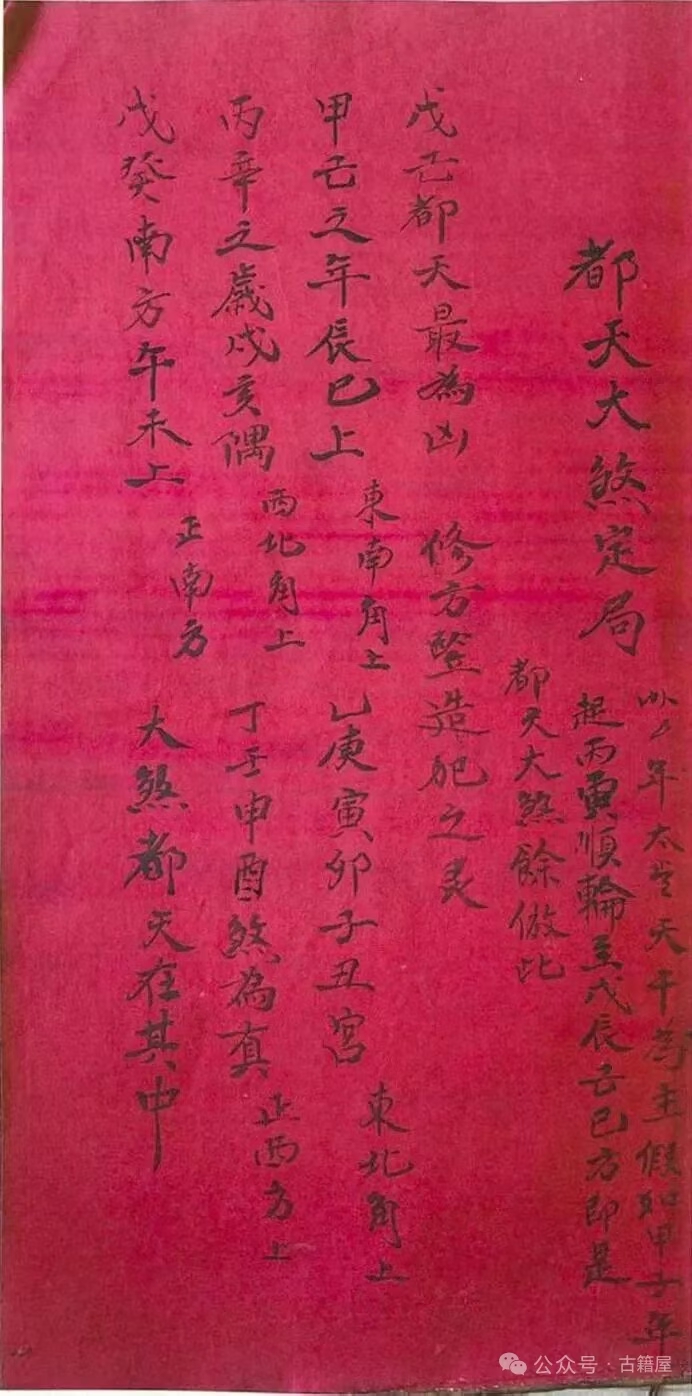 都天大煞定局
以年太岁天干為主假如甲子年
起丙寅順輪至戊辰己巳方即是
都天大煞餘倣此
戊己都天最為凶 修方竪造犯之灵
甲己之年辰巳上 東南角上 乙庚寅卯子丑宫 東北角上
丙辛之歲戌亥隅 西北角上 丁壬申酉煞為真 正西方上
戊癸南方午未上 正南方 大煞都天在其中
公众号·古籍屋